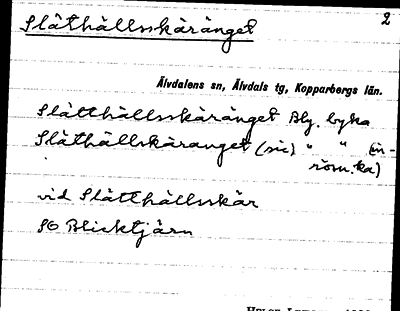 Slåthällsskäränget 2
Älvdalens sn, Älvdals tg, Kopparbergs län.
Slåtthällsskäränget Bly. byka
Slåthällskäranget (sic) " " (in-
röm.ka)
vid Slåtthällsskär
SO Blicktjärn